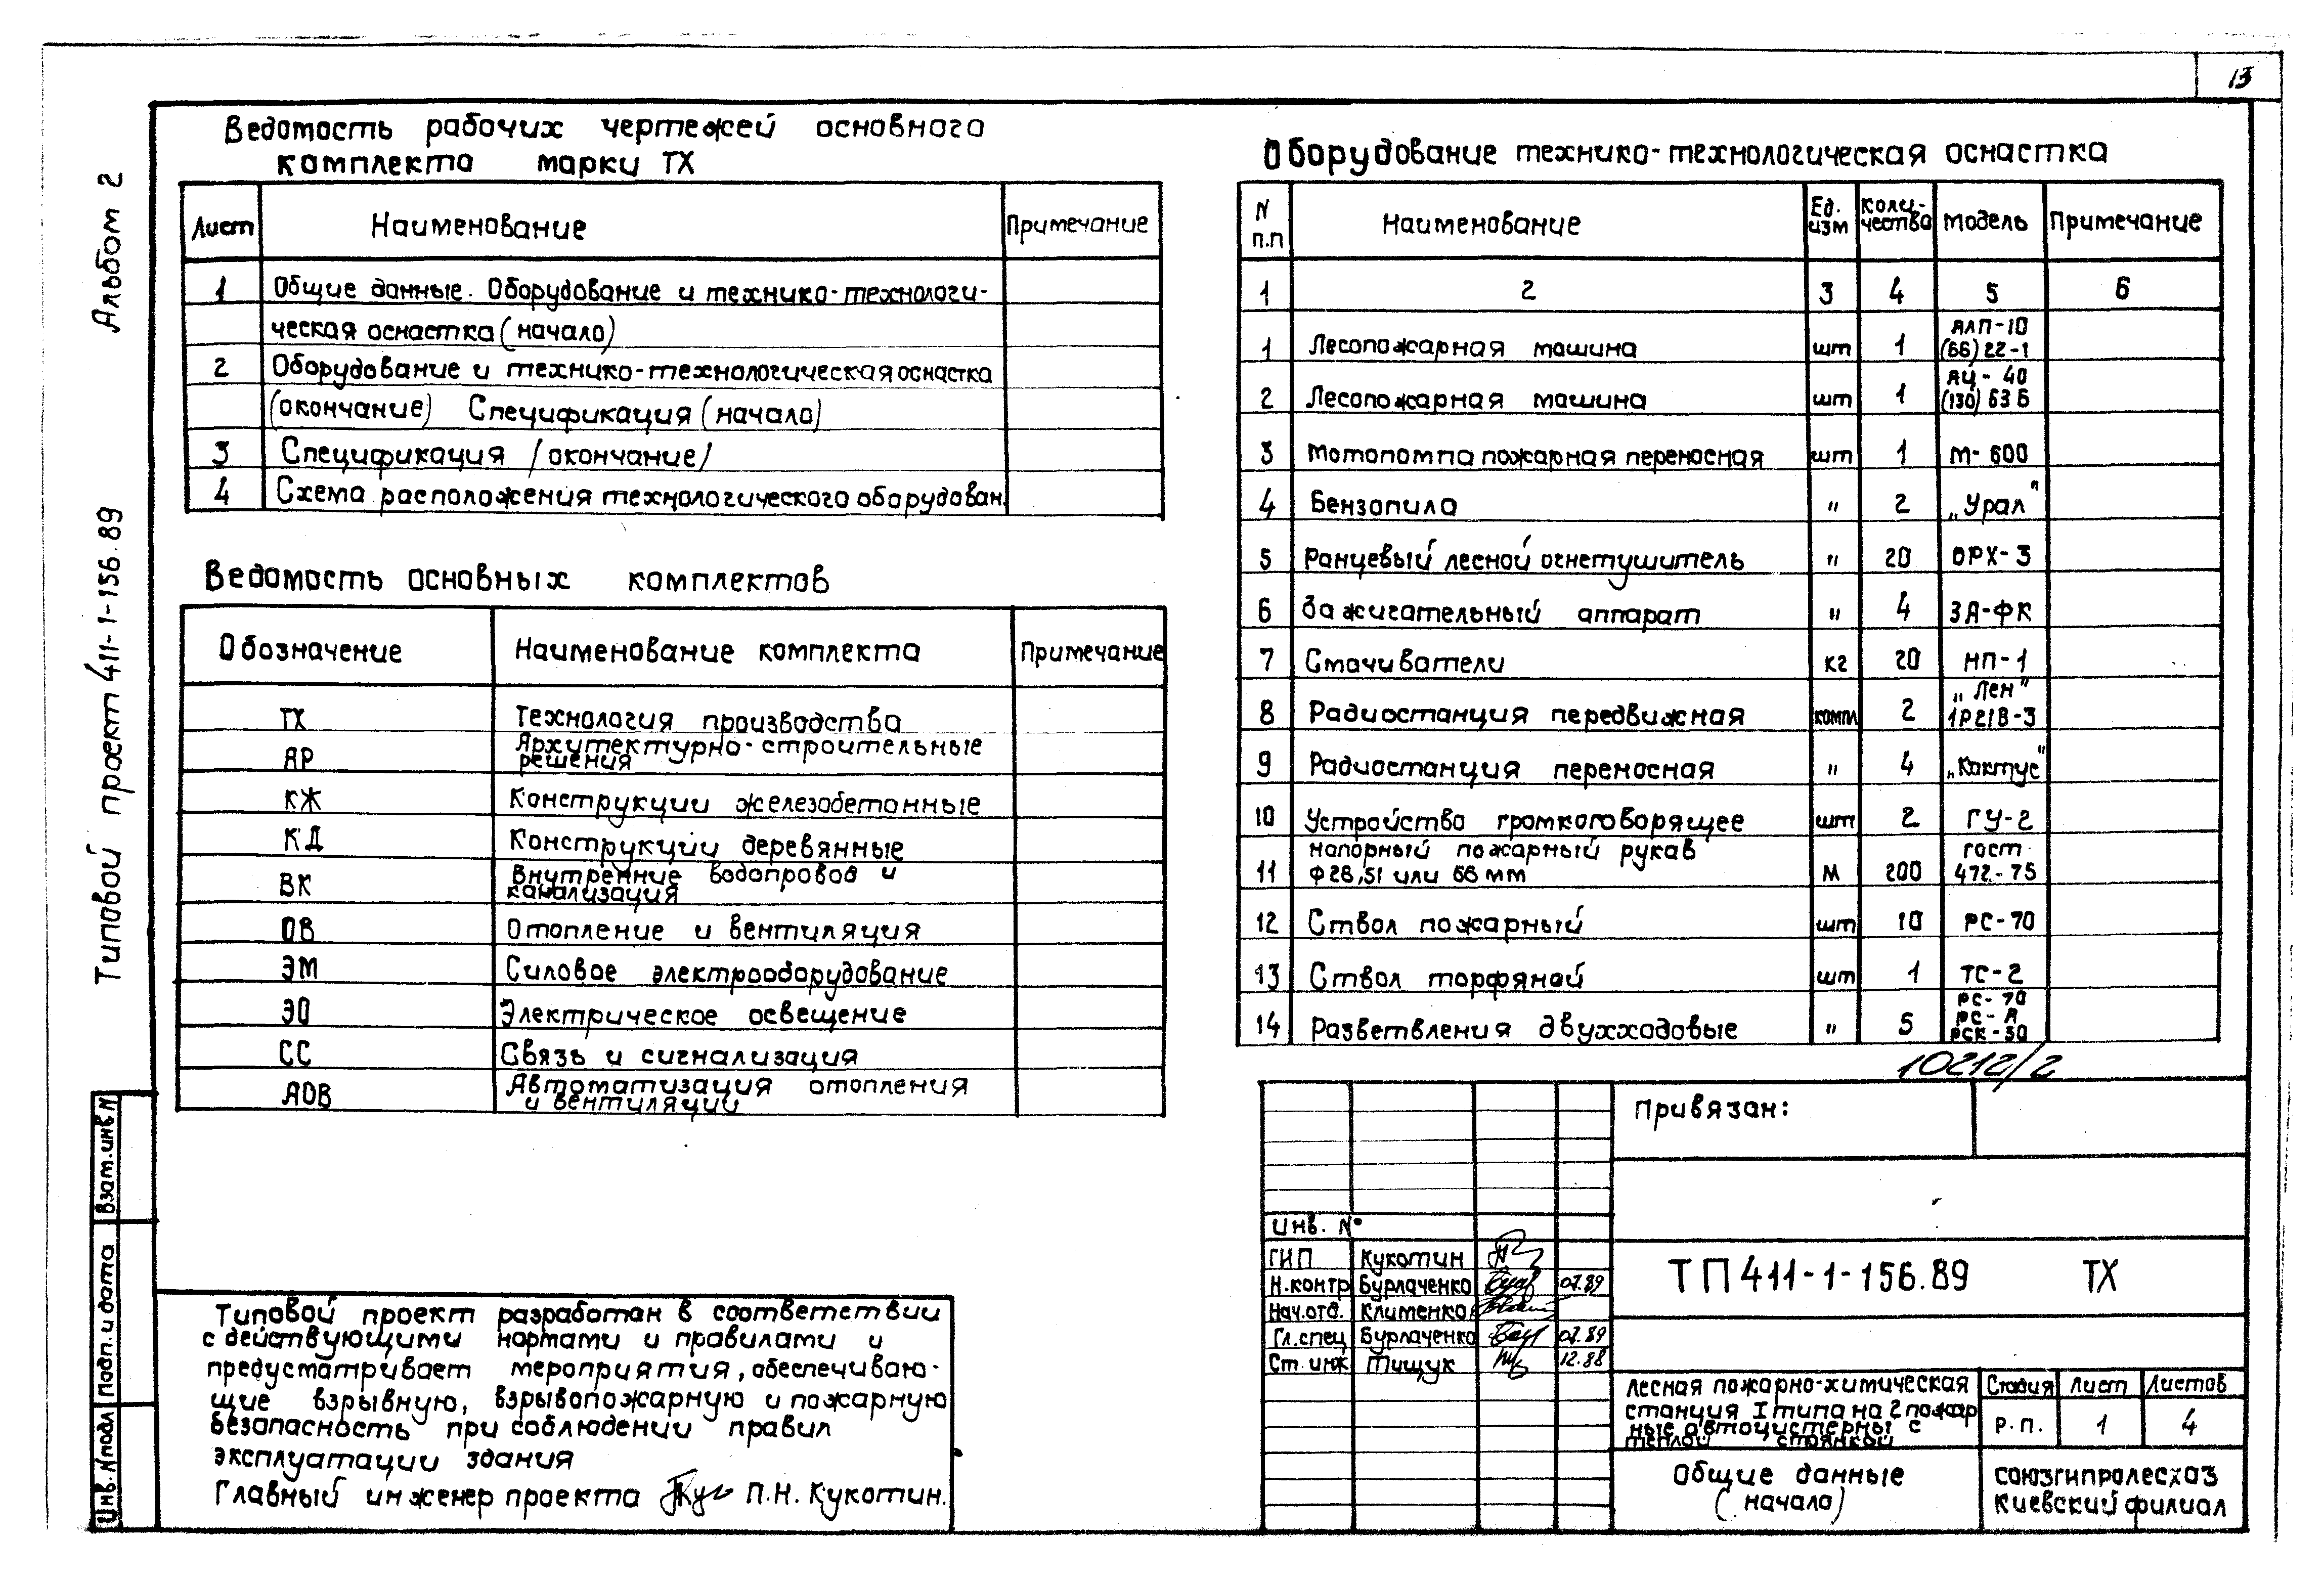 13
Альбом 2
Типовой проект 411-1-156.89
Ведомость рабочих чертежей основного
комплекта марки ТХ
Лист Наименование Примечание
1 Общие данные. Оборудование и технико-технологи-
ческая оснастка (начало)
2 Оборудование и технико-технологическая оснастка
(окончание) Спецификация (начало)
3 Спецификация /окончание/
4 Схема расположения технологического оборудован.
Ведомость основных комплектов
Обозначение Наименование комплекта Примечание
ТХ Технология производства
АР Архитектурно-строительные
решения
КЖ Конструкции железобетонные
КД Конструкции деревянные
ВК Внутренние водопровод и
канализация
ОВ Отопление и вентиляция
ЭМ Силовое электрооборудование
ЭО Электрическое освещение
СС Связь и сигнализация
АОВ Автоматизация отопления
и вентиляции
Типовой проект разработан в соответствии
с действующими нормами и правилами и
предусматривает мероприятия, обеспечиваю-
щие взрывную, взрывопожарную и пожарную
безопасность при соблюдении правил
эксплуатации здания
Главный инженер проекта П.Н. Кукотин.
Взам.инв N
Подп. и дата
Инв. N подл
Оборудование технико-технологическая оснастка
N п.п Наименование Ед. изм Коли-чества Модель Примечание
1 2 3 4 5 6
1 Лесопожарная машина шт 1 АЛП-10 (66) 22-1
2 Лесопожарная машина шт 1 АЦ-40 (130) 63Б
3 Мотопомпа пожарная переносная шт 1 М-600
4 Бензопила " 2 „Урал"
5 Ранцевый лесной огнетушитель " 20 ОРХ-3
6 Зажигательный аппарат " 4 ЗА-ФК
7 Смачиватели кг 20 НП-1
8 Радиостанция передвижная компл 2 „Лен" 1Р21В-3
9 Радиостанция переносная " 4 „Кактус"
10 Устройство громкоговорящее шт 2 ГУ-2
11 Напорный пожарный рукав Ф26,51 или 66 мм М 200 гост 472-75
12 Ствол пожарный шт 10 РС-70
13 Ствол торфяной шт 1 ТС-2
14 Разветвления двухходовые " 5 РС-70 РС-А РСК-50
10212/2
Привязан:
Инв. №
ГИП Кукотин
Н.контр Бурлаченко 07.89
Нач.отд. Клименко
Гл.спец Бурлаченко 07.89
Ст. инж Тищук 12.88
ТП 411-1-156.89 ТХ
Лесная пожарно-химическая
станция I типа на 2 пожар
ные автоцистерны с
теплой стоянкой
Стадия Лист Листов
Р.П. 1 4
Общие данные
(начало)
союзгипролесхоз
Киевский филиал